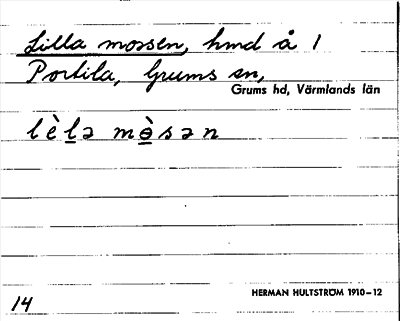 Lilla mossen, hmd å 1
Portila, Grums sn,
Grums hd, Värmlands län
lèlə mòsən
14
HERMAN HULTSTRÖM 1910–12